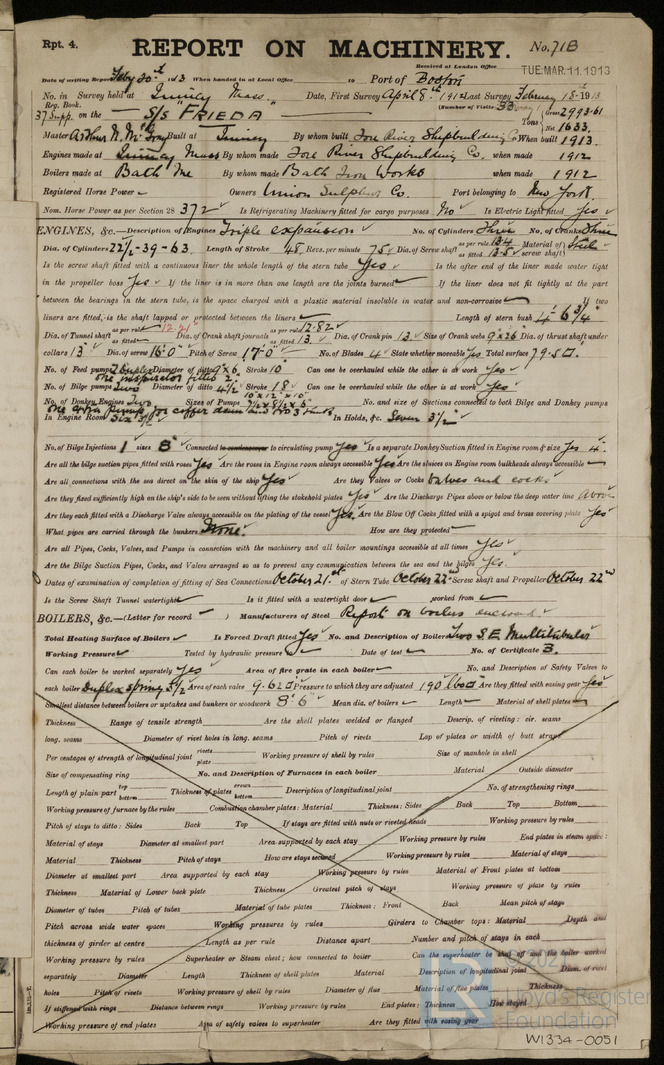 Rpt. 4. REPORT ON MACHINERY. No. 71B
Received at London Office TUE. MAR. 11. 1913
Date of writing Report Feby 20th 1913 When handed in at Local Office 10 Port of Boston
No. in Survey held at Quincy Mass. Date, First Survey April 8th 1912 Last Survey February 18th 1913
Reg. Book. (Number of Visits 33
37 Supp. on the S/S "FRIEDA" Tons Gross 2993.61 Net 1633
Master Arthur N. Built at Quincy By whom built Fore River Shipbuilding Co When built 1913
Engines made at Quincy Mass By whom made Fore River Shipbuilding Co. when made 1912
Boilers made at Bath Me By whom made Bath Iron Works when made 1912
Registered Horse Power Owners Union Sulphur Co. Port belonging to New York
Nom. Horse Power as per Section 28 372 Is Refrigerating Machinery fitted for cargo purposes No Is Electric Light fitted Yes
ENGINES, &c.—Description of Engines Triple expansion No. of Cylinders Three No. of Cranks Three
Dia. of Cylinders 22½-39-63 Length of Stroke 48 Revs. per minute 75 Dia. of Screw shaft as per rule 13.4 as fitted 13.5 Material of screw shaft Steel
Is the screw shaft fitted with a continuous liner the whole length of the stern tube Yes Is the after end of the liner made water tight
in the propeller boss Yes If the liner is in more than one length are the joints burned If the liner does not fit tightly at the part
between the bearings in the stern tube, is the space charged with a plastic material insoluble in water and non-corrosive If two
liners are fitted, is the shaft lapped or protected between the liners Length of stern bush 4'-6¾"
Dia. of Tunnel shaft as per rule 12.21 as fitted Dia. of Crank shaft journals as per rule 12.82 as fitted 13. Dia. of Crank pin 13 Size of Crank webs 9×26 Dia. of thrust shaft under
collars 13" Dia. of screw 16'-0" Pitch of Screw 17'-0" No. of Blades 4 State whether moveable Yes Total surface 79.5
No. of Feed pumps 2 Duplex Diameter of ditto 9×6 Stroke 10 Can one be overhauled while the other is at work Yes
one injector fitted 2"
No. of Bilge pumps Two Diameter of ditto 4½ Stroke 18 Can one be overhauled while the other is at work Yes
No. of Donkey Engines Two Sizes of Pumps 10"×12"×10" 7½×8½×6" No. and size of Suctions connected to both Bilge and Donkey pumps
one extra pump for coffer dam
In Engine Room Six 3½" In Holds, &c. Seven 3½"
No. of Bilge Injections 1 sizes 8" Connected to condenser, or to circulating pump Yes Is a separate Donkey Suction fitted in Engine room & size Yes 4"
Are all the bilge suction pipes fitted with roses Yes Are the roses in Engine room always accessible Yes Are the sluices on Engine room bulkheads always accessible
Are all connections with the sea direct on the skin of the ship Yes Are they Valves or Cocks Valves and cocks
Are they fixed sufficiently high on the ship's side to be seen without lifting the stokehold plates Yes Are the Discharge Pipes above or below the deep water line Above
Are they each fitted with a Discharge Valve always accessible on the plating of the vessel Yes Are the Blow Off Cocks fitted with a spigot and brass covering plate Yes
What pipes are carried through the bunkers None. How are they protected
Are all Pipes, Cocks, Valves, and Pumps in connection with the machinery and all boiler mountings accessible at all times Yes
Are the Bilge Suction Pipes, Cocks, and Valves arranged so as to prevent any communication between the sea and the bilges Yes.
Dates of examination of completion of fitting of Sea Connections October 21st of Stern Tube October 22nd Screw shaft and Propeller October 22nd
Is the Screw Shaft Tunnel watertight Is it fitted with a watertight door worked from
BOILERS, &c.—(Letter for record ) Manufacturers of Steel Report on boilers enclosed
Total Heating Surface of Boilers Is Forced Draft fitted Yes No. and Description of Boilers Two S.E. Multitubular
Working Pressure Tested by hydraulic pressure to Date of test No. of Certificate 3.
Can each boiler be worked separately Yes Area of fire grate in each boiler No. and Description of Safety Valves to
each boiler Duplex spring 3½ Area of each valve 9.62 Pressure to which they are adjusted 190 lbs Are they fitted with easing gear Yes
Smallest distance between boilers or uptakes and bunkers or woodwork 8'6" Mean dia. of boilers Length Material of shell plates
Thickness Range of tensile strength Are the shell plates welded or flanged Descrip. of riveting: cir. seams
long. seams Diameter of rivet holes in long. seams Pitch of rivets Lap of plates or width of butt straps
Per centages of strength of longitudinal joint rivets plate Working pressure of shell by rules Size of manhole in shell
Size of compensating ring No. and Description of Furnaces in each boiler Material Outside diameter
Length of plain part top bottom Thickness of plates crown bottom Description of longitudinal joint No. of strengthening rings
Working pressure of furnace by the rules Combustion chamber plates: Material Thickness: Sides Back Top Bottom
Pitch of stays to ditto: Sides Back Top If stays are fitted with nuts or riveted heads Working pressure by rules
Material of stays Diameter at smallest part Area supported by each stay Working pressure by rules End plates in steam space:
Material Thickness Pitch of stays How are stays secured Working pressure by rules Material of stays
Diameter at smallest part Area supported by each stay Working pressure by rules Material of Front plates at bottom
Thickness Material of Lower back plate Thickness Greatest pitch of stays Working pressure of plate by rules
Diameter of tubes Pitch of tubes Material of tube plates Thickness: Front Back Mean pitch of stays
Pitch across wide water spaces Working pressures by rules Girders to Chamber tops: Material Depth and
thickness of girder at centre Length as per rule Distance apart Number and pitch of stays in each
Working pressure by rules Superheater or Steam chest; how connected to boiler Can the superheater be shut off and the boiler worked
separately Diameter Length Thickness of shell plates Material Description of longitudinal joint Diam. of rivet
holes Pitch of rivets Working pressure of shell by rules Diameter of flue Material of flue plates Thickness
If stiffened with rings Distance between rings Working pressure by rules End plates: Thickness How stayed
Working pressure of end plates Area of safety valves to superheater Are they fitted with easing gear
Lloyd's Register
Foundation
W1334-0051